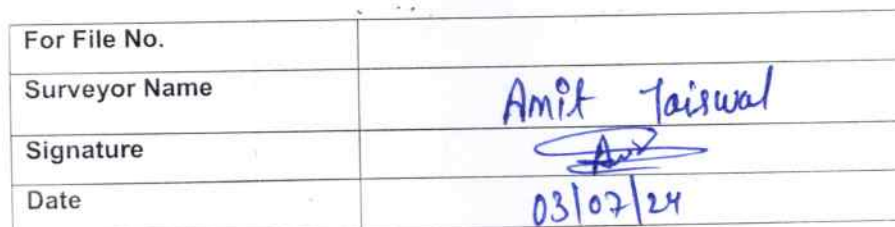 For File No.
Surveyor Name Amit Jaiswal
Signature
Date 03/07/24